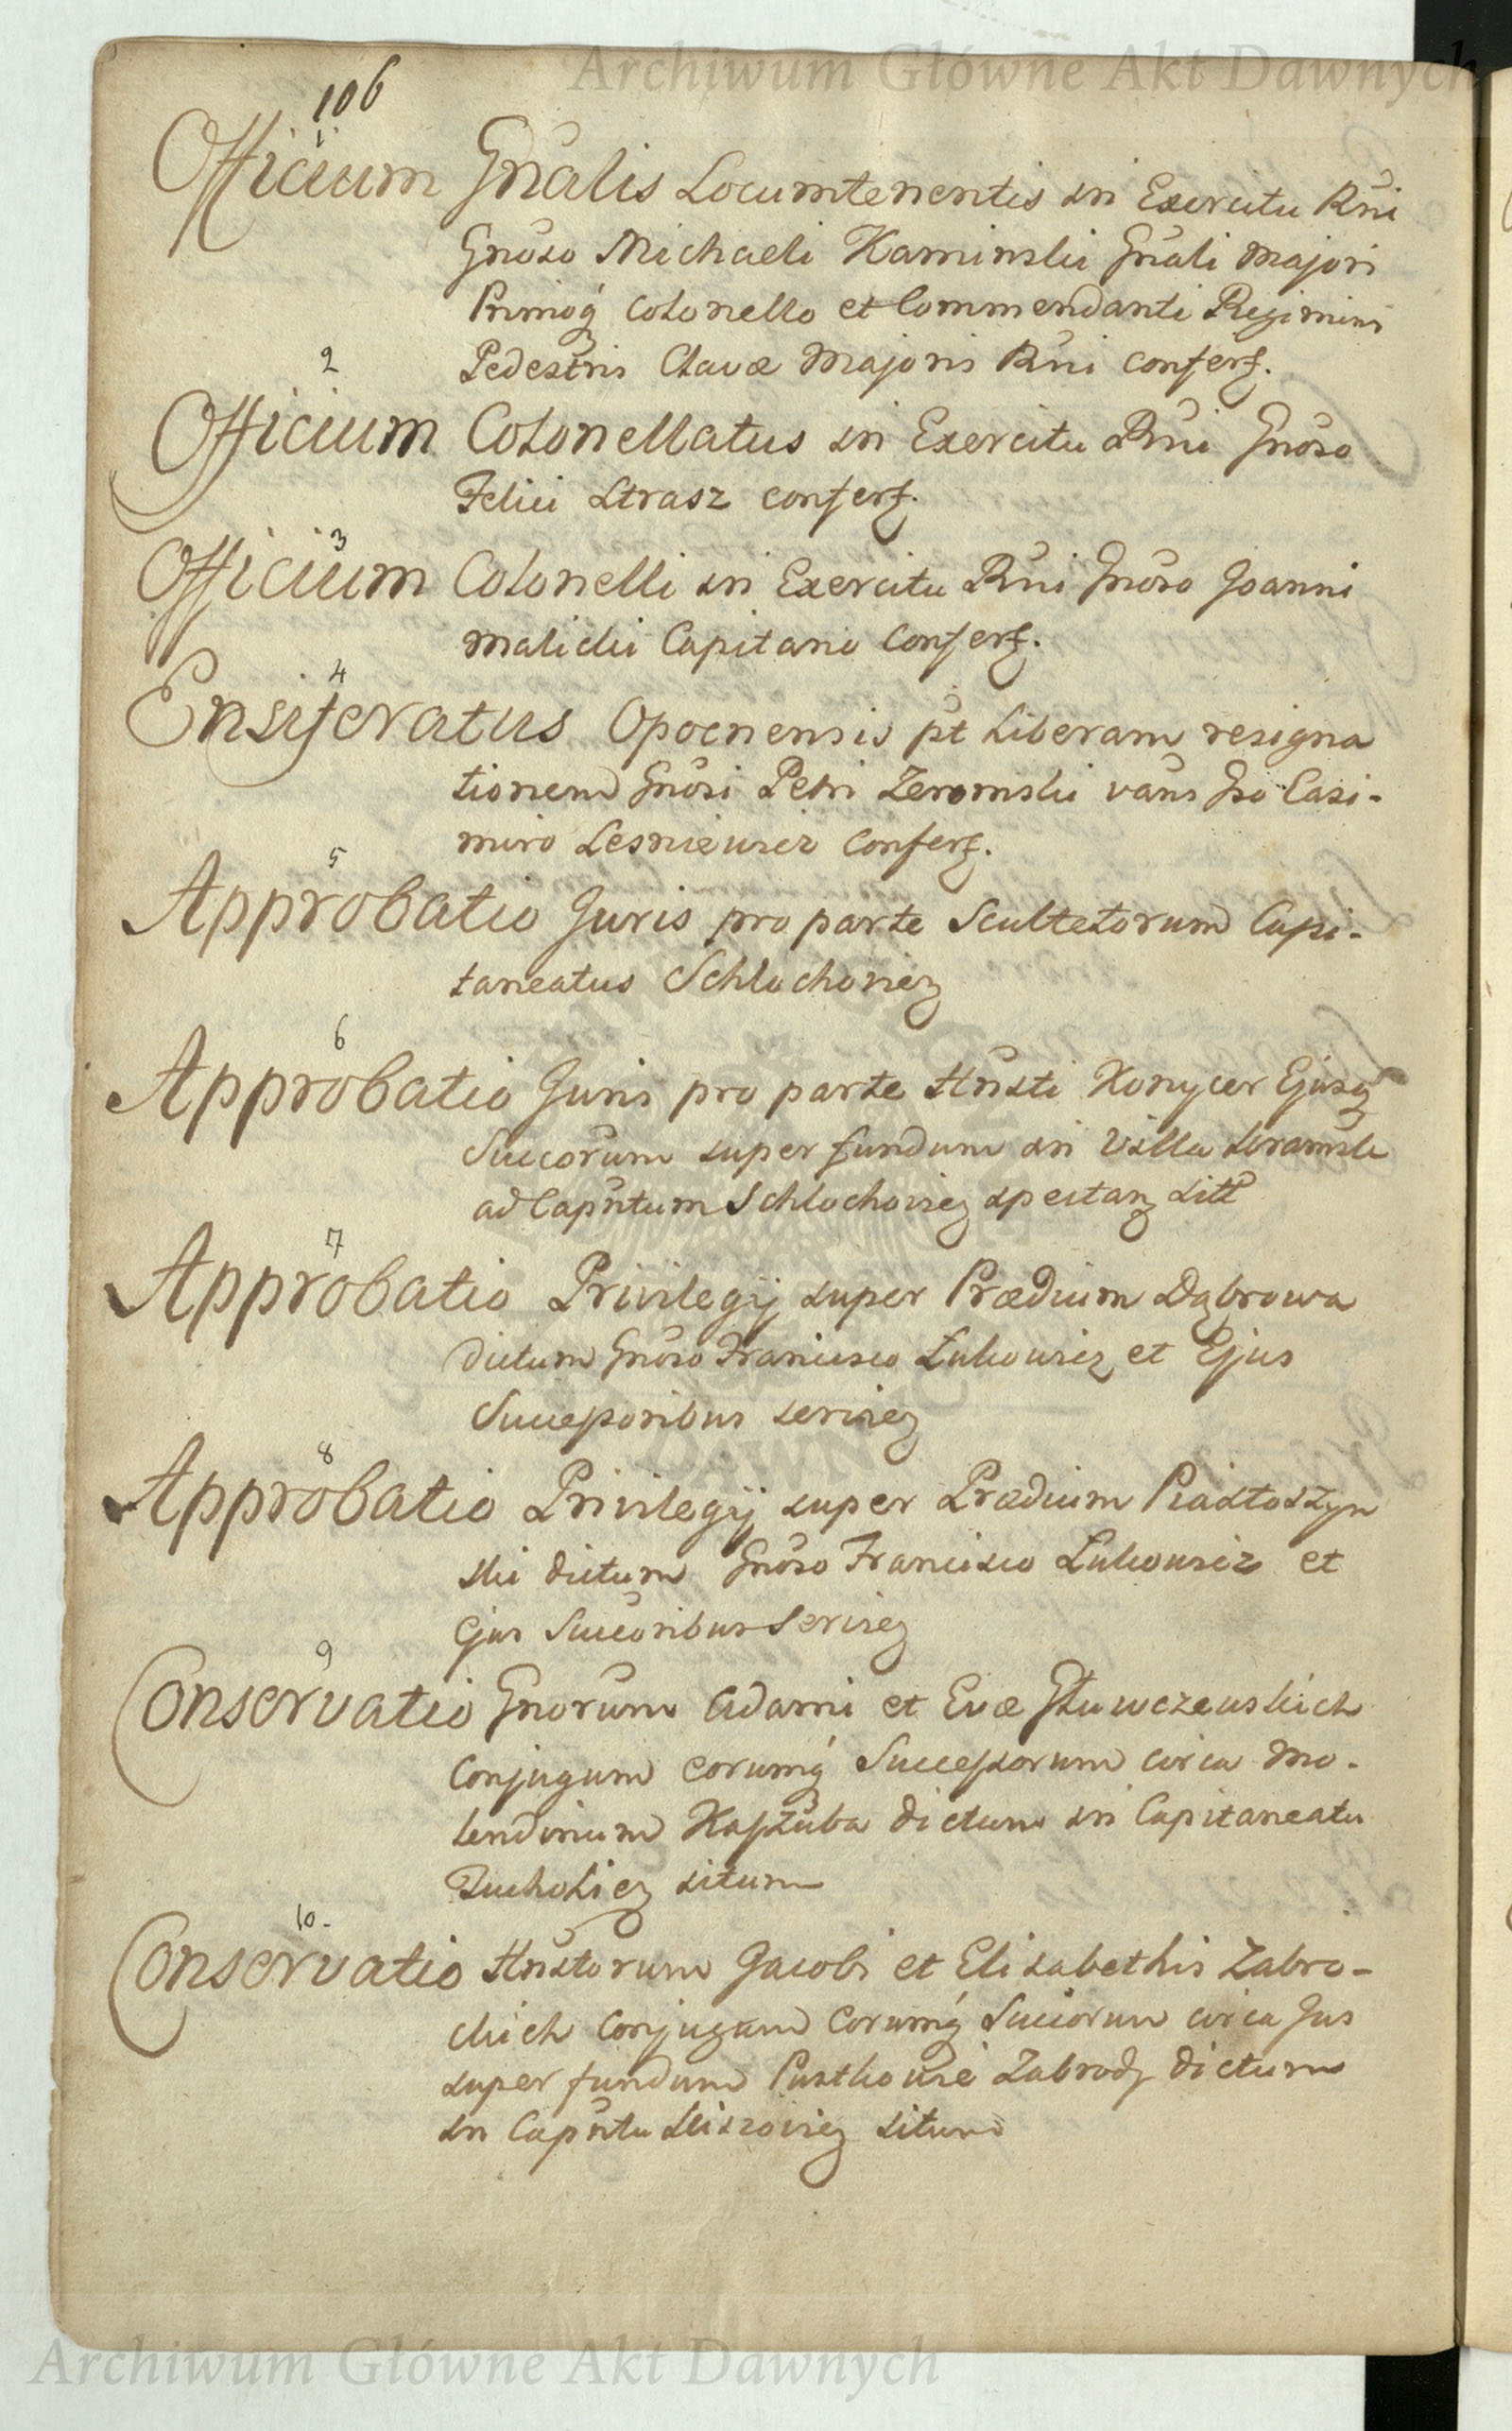 Archiwum Główne Akt Dawnych
106
1
Officium Gnalis Locumtenentis in Exercitu Rni
Gnoso Michaeli Kaminski Gnali Majori
Primoq́ Colonello et Commendanti Regimini
Pedestris Clavæ Majoris Rni Conferꝫ.
2
Officium Colonellatus in Exercitu Rni Gnoso
Felici Strasz Conferꝫ.
3
Officium Colonelli in Exercitu Rni Gnoso Joanni
Malicki Capitano Conferꝫ.
4
Ensiferatus Opocnensis pt Liberam resigna
tionem Gnosi Petri Zeromski vans Gso Casi-
miro Lesniewicz Conferꝫ.
5
Approbatio Juris pro parte Scultetorum Capi-
taneatus Schlochovieꝫ
6
Approbatio Juris pro parte Hnsti Konycer Ejusqꝫ
Succorum super fundum in Villa
ad Capntum Schlochovieꝫ spectanꝫ sitt
7
Approbatio Privilegij super Prædium Dąbrowa
dictum Gnoso Francisco Lukowicz et Ejus
Successoribus servieꝫ
8
Approbatio Privilegij super Prædium Piastoszyn
ski dictum Gnoso Francisco Lukowicz et
Ejus Succoribus Servieꝫ
9
Conservatio Gnorum Adami et Evæ Głuwczewskich
Conjugum Eorumq́ Successorum circa Mo-
lendinum Kaszuba dictum in Capitaneatu
Tucholieꝫ situm
10.
Conservatio Hnstorum Jacobi et Elisabethis Zabro-
ckich Conjugum Eorumq́ Succorum circa Jus
super fundum Pustkowie Zabrody dictum
in Capntu Kiszovieꝫ situm
Archiwum Główne Akt Dawnych